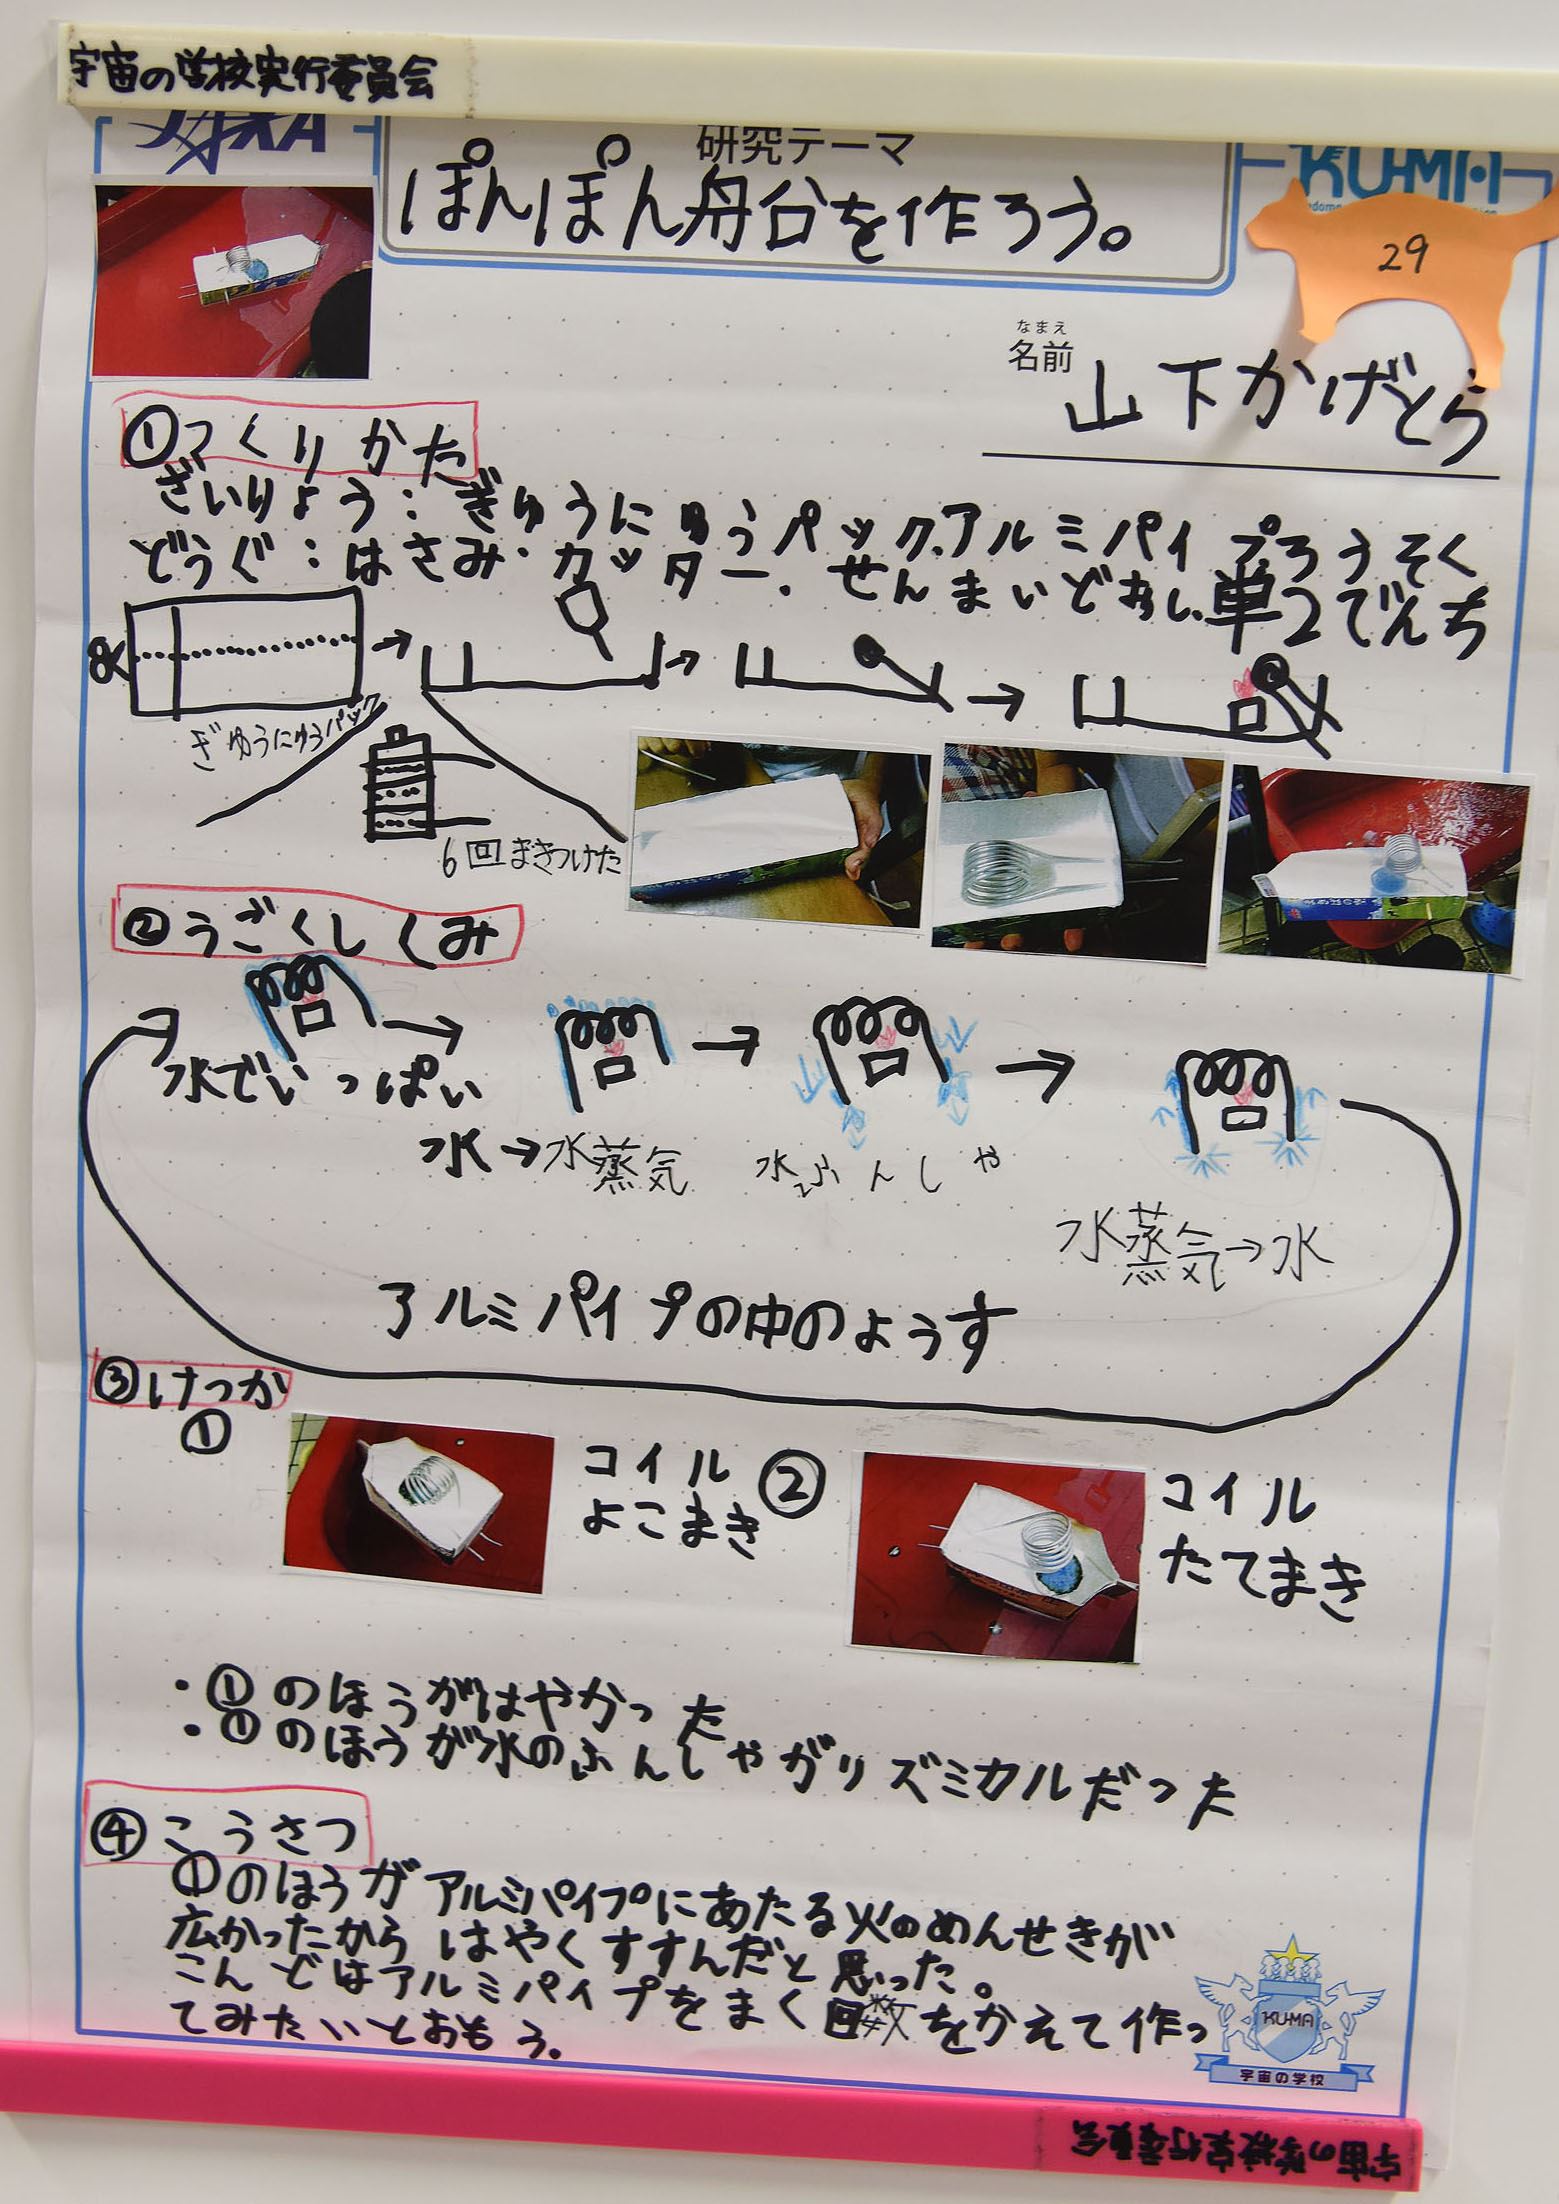 宇宙の学校実行委員会
研究テーマ
KU-MA
ぽんぽん船を作ろう。
29
なまえ
名前
山下かげとら
①つくりかた
ざいりょう：ぎゅうにゅうパック、アルミパイプろうそく
どうぐ：はさみ・カッター・せんまいどおし、単2でんち
ぎゅうにゅうパック
6回まきつけた
②うごくしくみ
水でいっぱい
水→水蒸気
水ふんしゃ
水蒸気→水
アルミパイプの中のようす
③けっか
①
コイル
よこまき
②
コイル
たてまき
・①のほうがはやかった
・①のほうが水のふんしゃがリズミカルだった
④こうさつ
①のほうがアルミパイプにあたる火のめんせきが
広かったからはやくすすんだと思った。
こんどはアルミパイプをまく回数をかえて作っ
てみたいとおもう。
KU-MA
宇宙の学校
宇宙の学校実行委員会